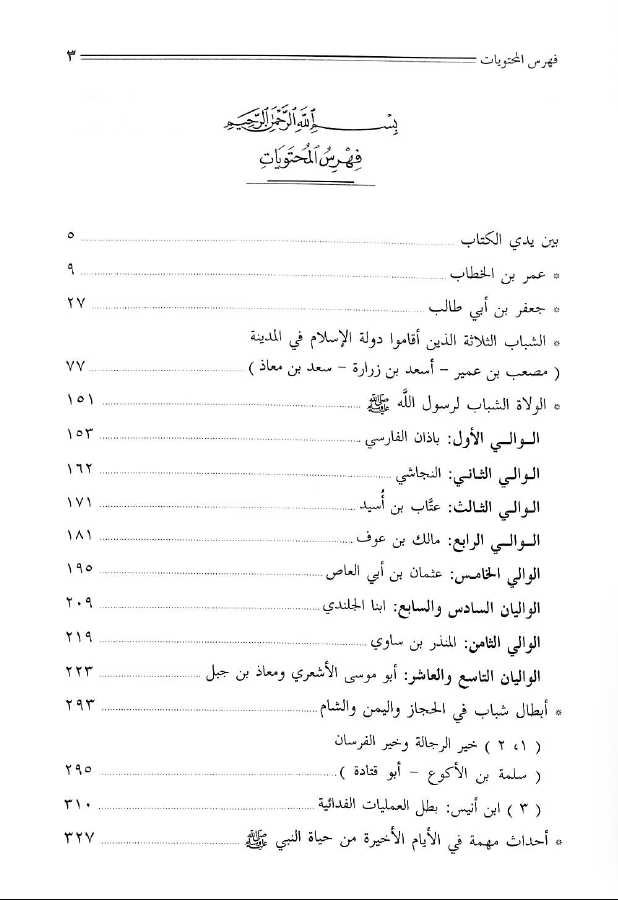 فهرس المحتويات ٣
بِسْمِ اللَّهِ الرَّحْمَنِ الرَّحِيمِ
فِهْرِسُ الْمُحْتَوَيَاتِ
بين يدي الكتاب ٥
* عمر بن الخطاب ٩
* جعفر بن أبي طالب ٢٧
* الشباب الثلاثة الذين أقاموا دولة الإسلام في المدينة
( مصعب بن عمير - أسعد بن زرارة - سعد بن معاذ ) ٧٧
* الولاة الشباب لرسول اللَّه ﷺ ١٥١
الـوالـي الأول: باذان الفارسي ١٥٣
الـوالي الثـانـي: النجاشي ١٦٢
الـوالي الثـالـث: عتَّاب بن أُسيد ١٧١
الـوالـي الرابع: مالك بن عوف ١٨١
الوالي الخامـس: عثمان بن أبي العاص ١٩٥
الواليان السادس والسابع: ابنا الجلندي ٢٠٩
الوالي الثامن: المنذر بن ساوي ٢١٩
الواليان التاسع والعاشر: أبو موسى الأشعري ومعاذ بن جبل ٢٢٣
* أبطال شباب في الحجاز واليمن والشام ٢٩٣
( ١، ٢ ) خير الرجالة وخير الفرسان
( سلمة بن الأكوع - أبو قتادة ) ٢٩٥
( ٣ ) ابن أنيس: بطل العمليات الفدائية ٣١٠
* أحداث مهمة في الأيام الأخيرة من حياة النبي ﷺ ٣٢٧